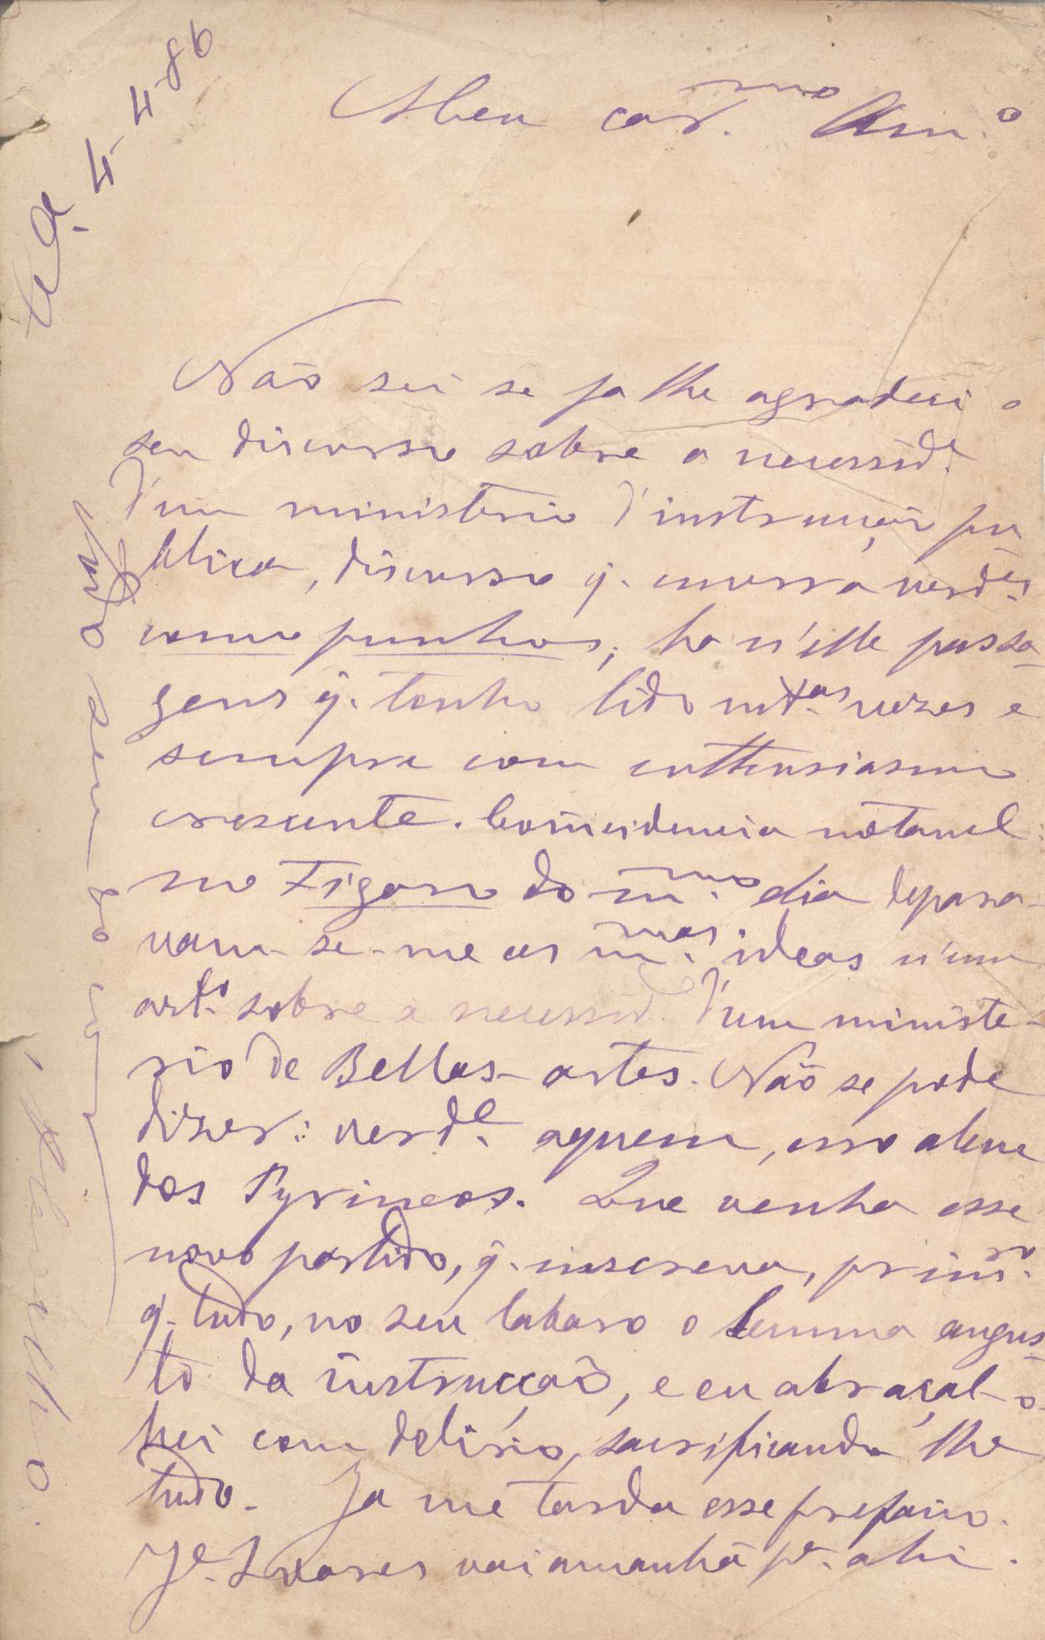 4-4-86
Meu car.mo Am.o
Não sei se ja lhe agradeci o
seu discurso sobre a necessid.e
d'um ministerio d'instrucção pu
blica, discurso q. encerra verd.es
como punhos; ha n'elle passa-
gens q. tenho lido mt.as vezes e
sempre com enthusiasmo
crescente. Coincidencia notavel:
no Figaro do m.mo dia depara-
vam-se-me as m.mas ideas n'um
art.o sobre a necessid.e d'um ministe-
rio de Bellas-artes. Não se pode
dizer: verd.e aquem, erro alem
dos Pyrineos. Que venha esse
novo partido, q. inscreva, prim.ro
q. tudo, no seu labaro o lemma augus-
to da instrucção, e eu abraçal-o-
hei com delirio, sacrificando-lhe
tudo. Ja me tarda esse prefacio.
J.e Soares vai amanhã p.a ahi.
seu do c.